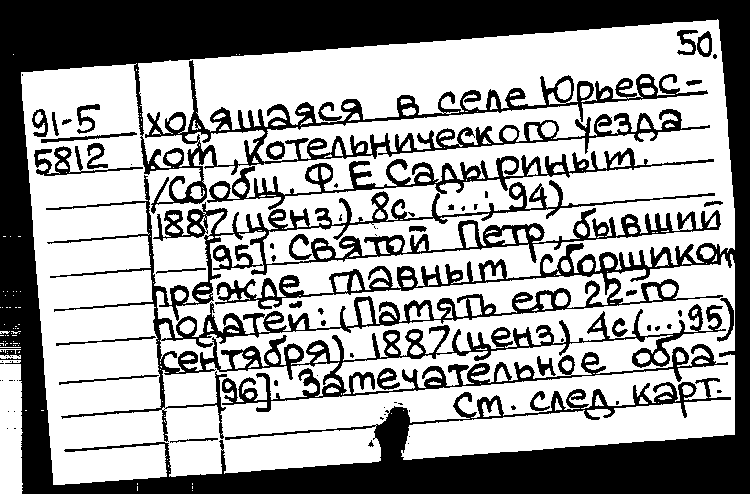 50.
91-5 ходящаяся в селе Юрьевс-
5812 ком, Котельнического уезда
/Сообщ. Ф. Е Садыриным.
1887(ценз.). 8с. (...; 94).
[95]: Святой Петр, бывший
прежде главным сборщиком
податей: (Память его 22-го
сентября). 1887(ценз). 4с(...;95)
[96]: Замечательное обра-
См. след. карт.